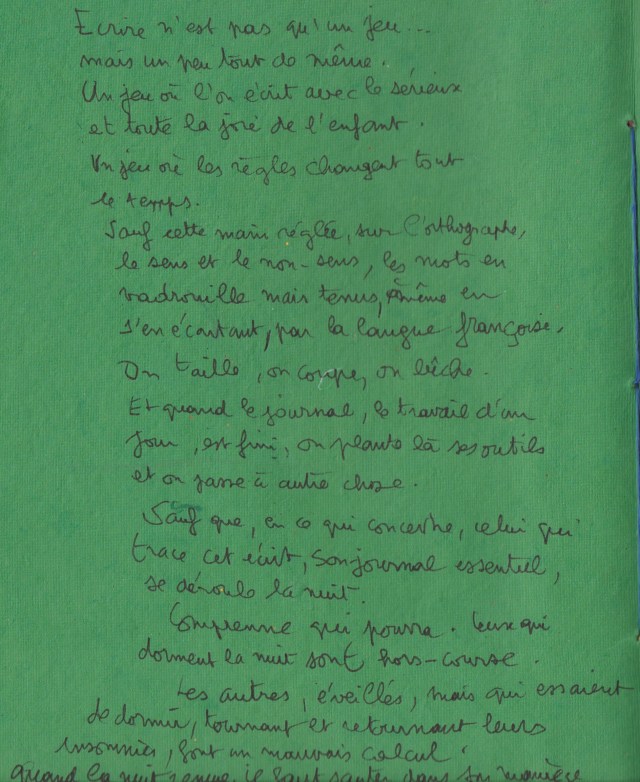 Ecrire n'est pas qu'un jeu...
mais un peu tout de même.
Un jeu où l'on écrit avec le sérieux
et toute la joie de l'enfant.
Un jeu où les règles changent tout
le temps.
Sauf cette main réglée, sur l'orthographe,
le sens et le non-sens, les mots en
vadrouille mais tenus, même en
s'en écartant, par la langue françoise.
On taille, on coupe, on bêche.
Et quand le journal, le travail d'un
jour, est fini, on plante là ses outils
et on passe à autre chose.
Sauf que, en ce qui concerne, celui qui
trace cet écrit, son journal essentiel,
se déroule la nuit.
Comprenne qui pourra. Ceux qui
dorment la nuit sont hors-course.
Les autres, éveillés, mais qui essaient
de dormir, tournant et retournant leurs
insomnies, font un mauvais calcul.
Quand la nuit remue, il faut sauter dans sa manière